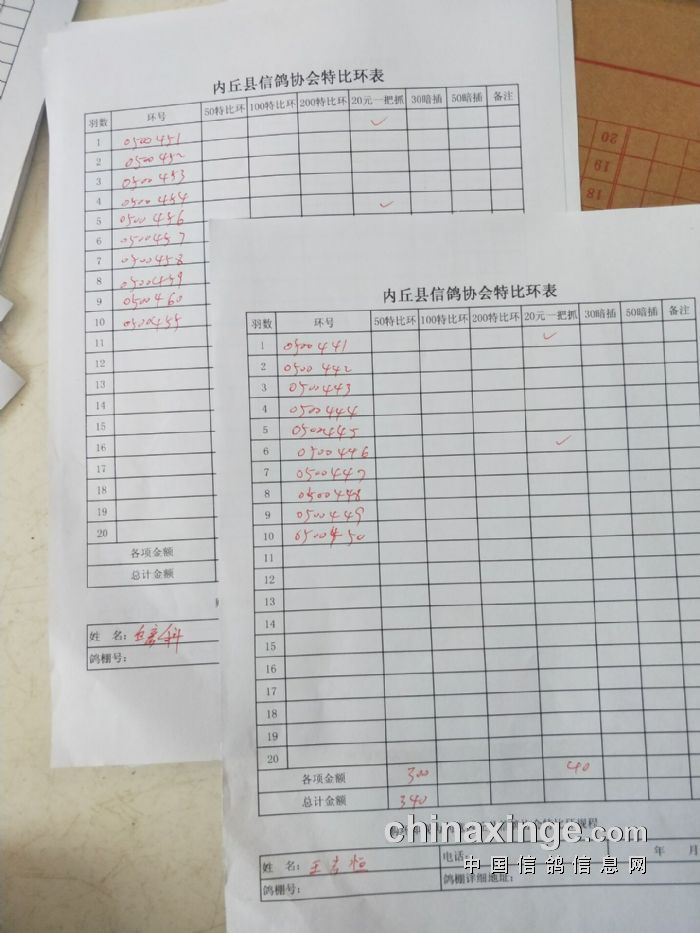 内丘县信鸽协会特比环表
羽数 环号 50特比环 100特比环 200特比环 20元一把抓 30暗插 50暗插 备注
1 0500451 ✓
2 0500452
3 0500453
4 0500454
5 0500456 ✓
6 0500457
7 0500458
8 0500459
9 0500460
10 0500455
11
12
13
14
15
16
17
18
19
20
各项金额
总计金额
姓 名:
鸽棚号:
20
19
18
内丘县信鸽协会特比环表
羽数 环号 50特比环 100特比环 200特比环 20元一把抓 30暗插 50暗插 备注
1 0500441 ✓
2 0500442
3 0500443
4 0500444
5 0500445
6 0500446 ✓
7 0500447
8 0500448
9 0500449
10 0500450
11
12
13
14
15
16
17
18
19
20
各项金额 300 40
总计金额 340
姓 名: 王 恒 电话: 年 月
鸽棚号: 鸽棚详细地址:
chinaxinge.com
中国信鸽信息网